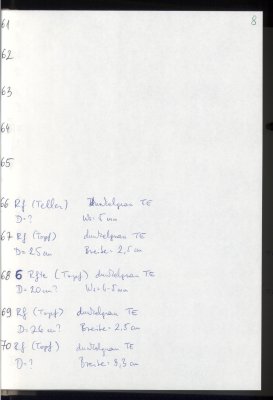 8
61
62
63
64
65
66 Rf (Teller) Dunkelgrau TE
D=? Ws: 5 mm
67 Rf (Topf) dunkelgrau TE
D= 25cm Breite: 2,5cm
68 6 Rfte (Topf) dunkelgrau TE
D= 20cm? Ws: 6-5mm
69 Rf (Topf) dunkelgrau TE
D= 26cm? Breite: 2,5cm
70 Rf (Topf) dunkelgrau TE
D=? Breite: 3,3cm